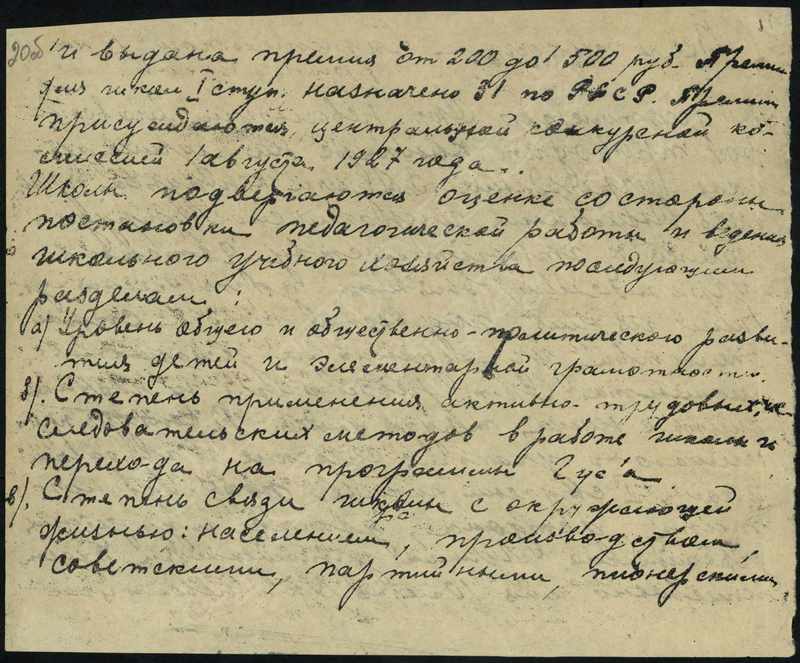 20об и выдана премия от 200 до 500 руб. Премии
для школ I ступ. назначено 31 по РСФСР. Премии
присуждаются центральной конкурсной ко-
миссией 1 августа 1927 года.
Школы подвергаются оценке со стороны
постановки педагогической работы и ведения
школьного учебного хозяйства по следующим
разделам:
а) Уровень общего и общественно-политического разви-
тия детей и элементарной грамотности.
в). Степень применения активно-трудовых, ис-
следовательских методов в работе школы и
перехода на программы Гус'а
в). Степень связи школы с окружающей
жизнью: населением, производством,
советскими, партийными, пионерскими